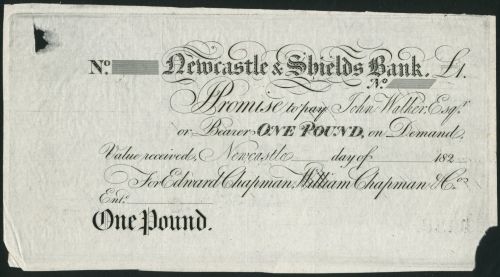 No. Newcastle & Shields Bank. £1.
No.
I Promise to pay John Walker, Esqr.
or Bearer ONE POUND, on Demand
Value received, Newcastle day of 182
For Edward Chapman, William Chapman & Cos.
Ent.
One Pound.